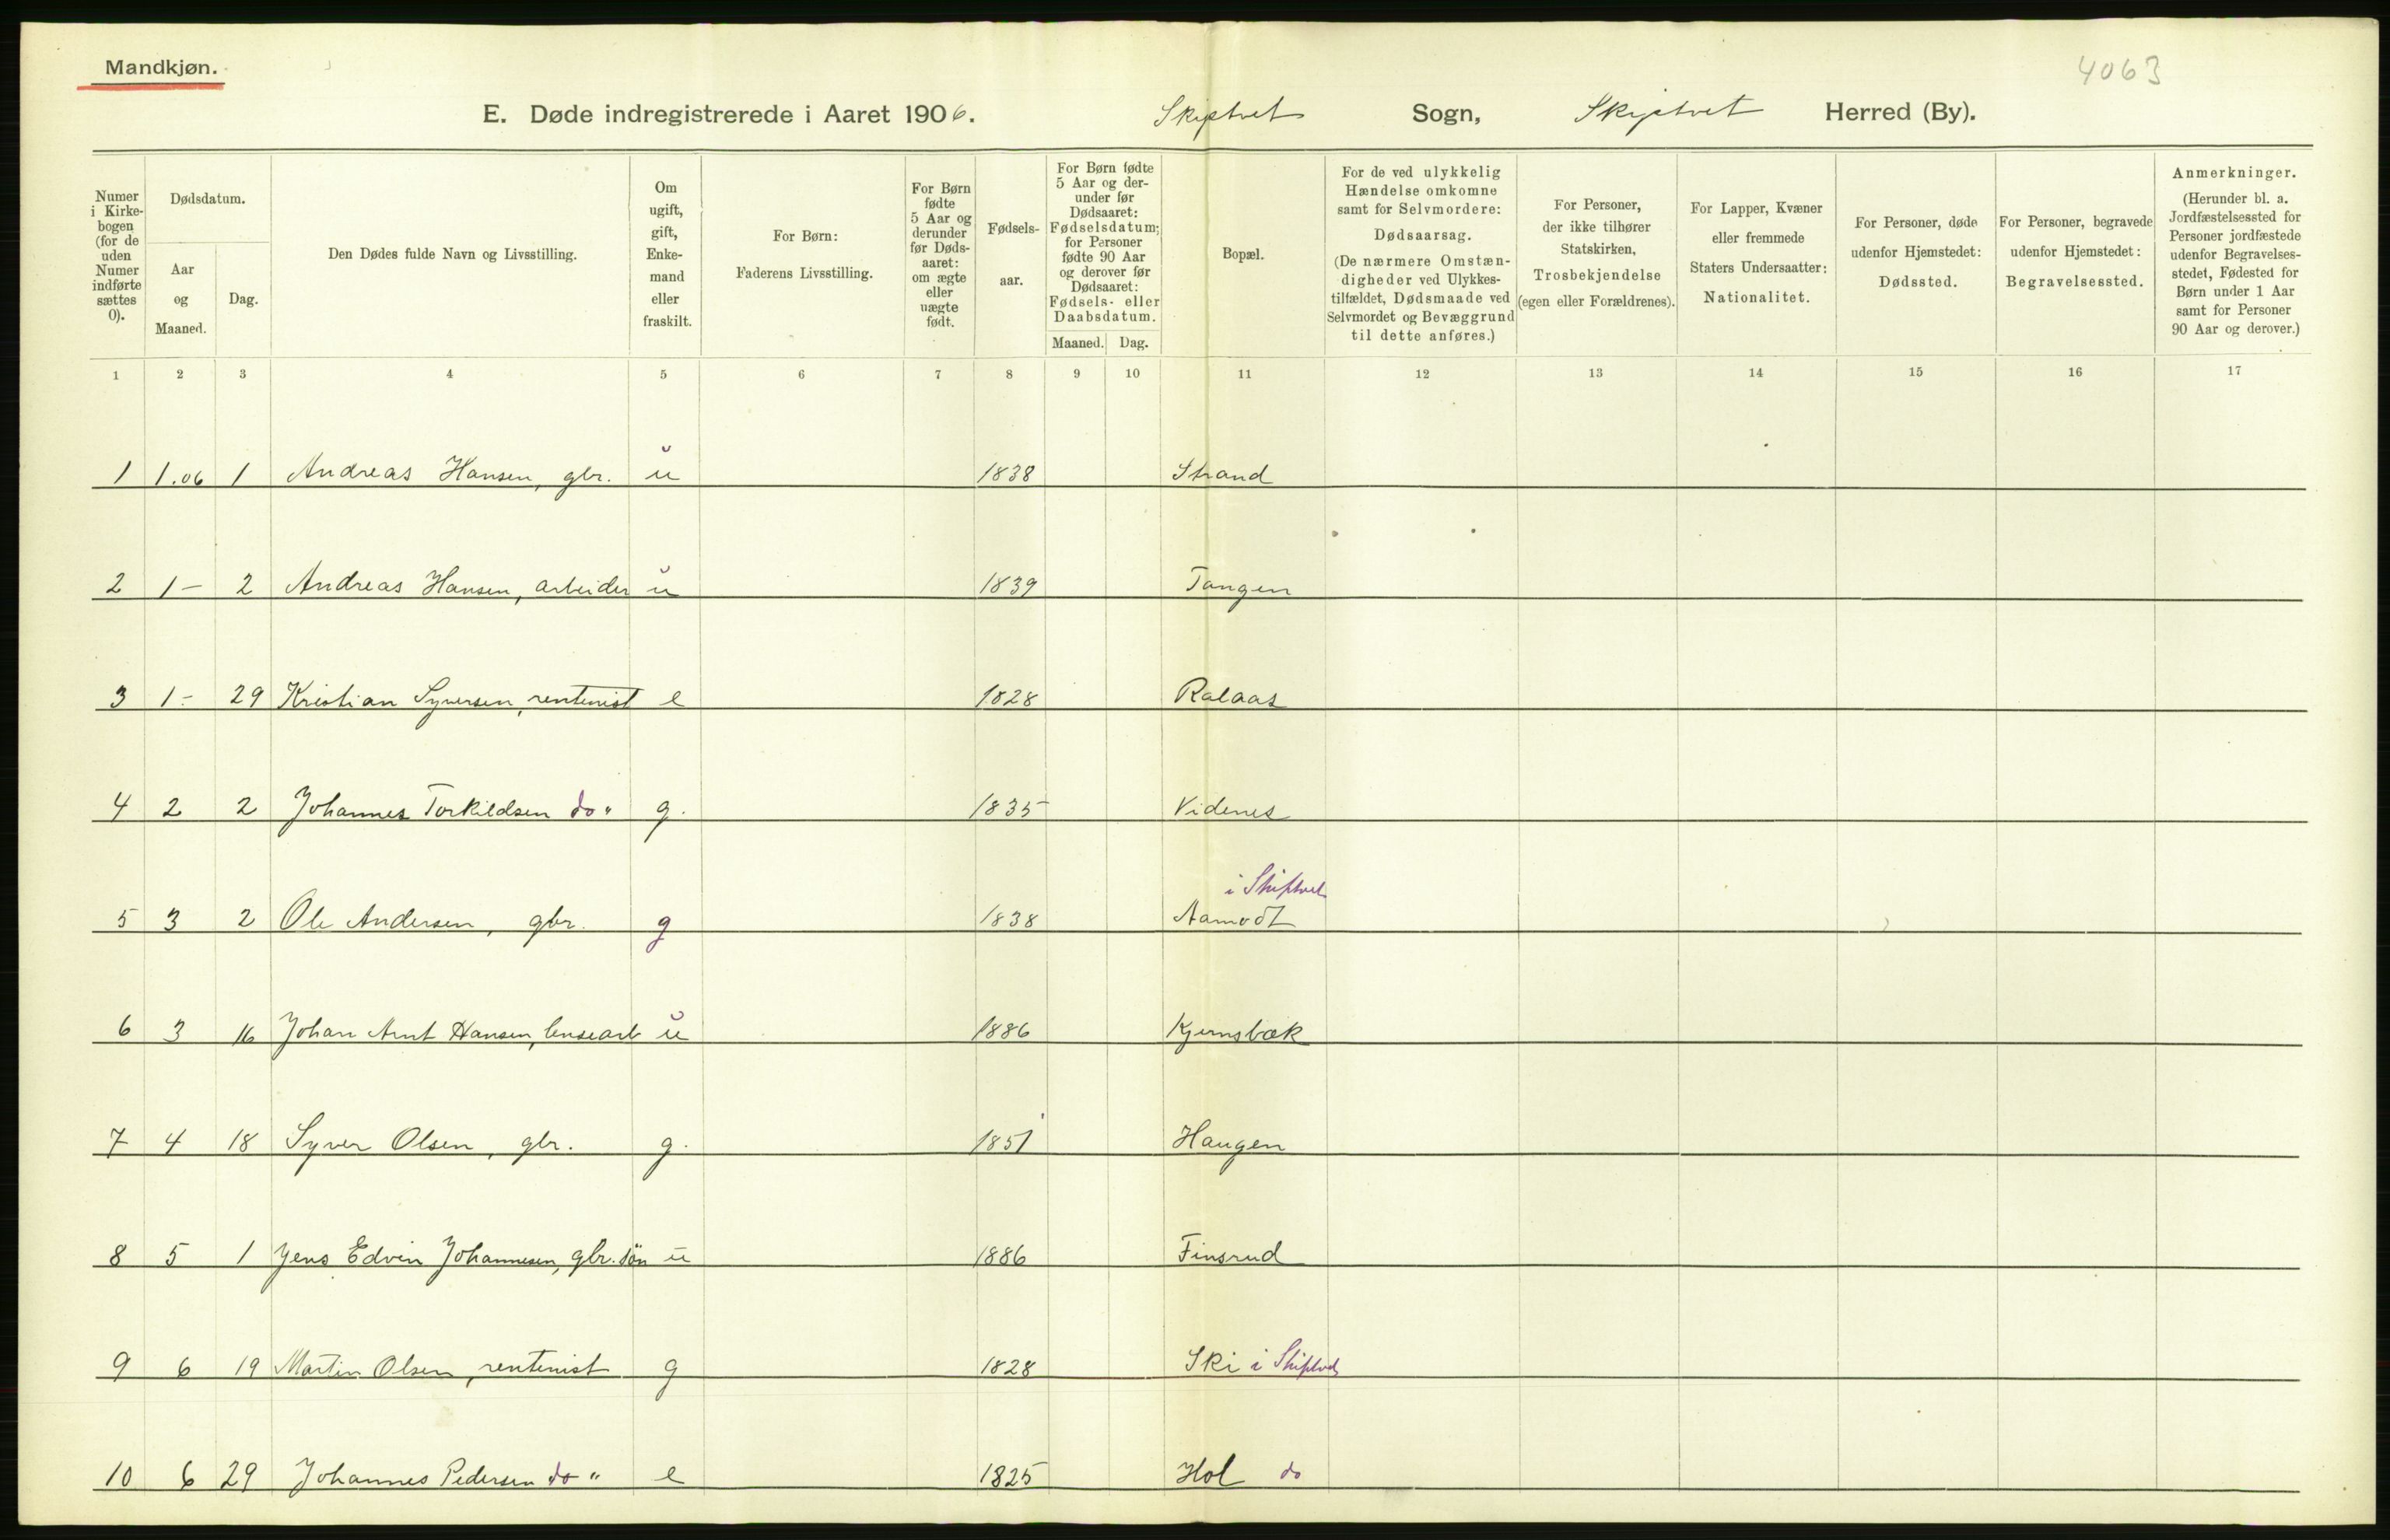 Mandkjøn.
4063
E. Døde indregistrerede i Aaret 1906. Skiptvet Sogn, Skiptvet Herred (By).
Numer i Kirkebogen (for de uden Numer indførte sættes 0).
Dødsdatum.
Aar og Maaned.
Dag.
Den Dødes fulde Navn og Livsstilling.
Om ugift, gift, Enkemand eller fraskilt.
For Børn: Faderens Livsstilling.
For Børn fødte 5 Aar og derunder før Dødsaaret: om ægte eller uægte født.
Fødselsaar.
For Børn fødte 5 Aar og derunder før Dødsaaret: Fødselsdatum; for Personer fødte 90 Aar og derover før Dødsaaret: Fødsels- eller Daabsdatum.
Maaned. Dag.
Bopæl.
For de ved ulykkelig Hændelse omkomne samt for Selvmordere: Dødsaarsag. (De nærmere Omstændigheder ved Ulykkestilfældet, Dødsmaade ved Selvmordet og Bevæggrund til dette anføres.)
For Personer, der ikke tilhører Statskirken, Trosbekjendelse (egen eller Forældrenes).
For Lapper, Kvæner eller fremmede Staters Undersaatter: Nationalitet.
For Personer, døde udenfor Hjemstedet: Dødssted.
For Personer, begravede udenfor Hjemstedet: Begravelsessted.
Anmerkninger. (Herunder bl. a. Jordfæstelsessted for Personer jordfæstede udenfor Begravelsesstedet, Fødested for Børn under 1 Aar samt for Personer 90 Aar og derover.)
1 2 3 4 5 6 7 8 9 10 11 12 13 14 15 16 17
1 1.06 1 Andreas Hansen, gbr. u 1838 Strand
2 1- 2 Andreas Hansen, arbeider u 1839 Tangen
3 1- 29 Kristian Syversen, rentenist e 1828 Ralaas
4 2 2 Johannes Torkildsen do " g. 1835 Videnes
i Skiptvet
5 3 2 Ole Andersen, gbr. g 1838 Aamodt
6 3 16 Johan Arnt Hansen, lensearb u 1886 Kjernsbæk
7 4 18 Syver Olsen, gbr. g. 1851 Haugen
8 5 1 Jens Edvin Johannesen, gbr. søn u 1886 Finsrud
9 6 19 Martin Olsen, rentenist g 1828 Ski i Skiptvet
10 6 29 Johannes Pedersen do " e 1825 Hol do